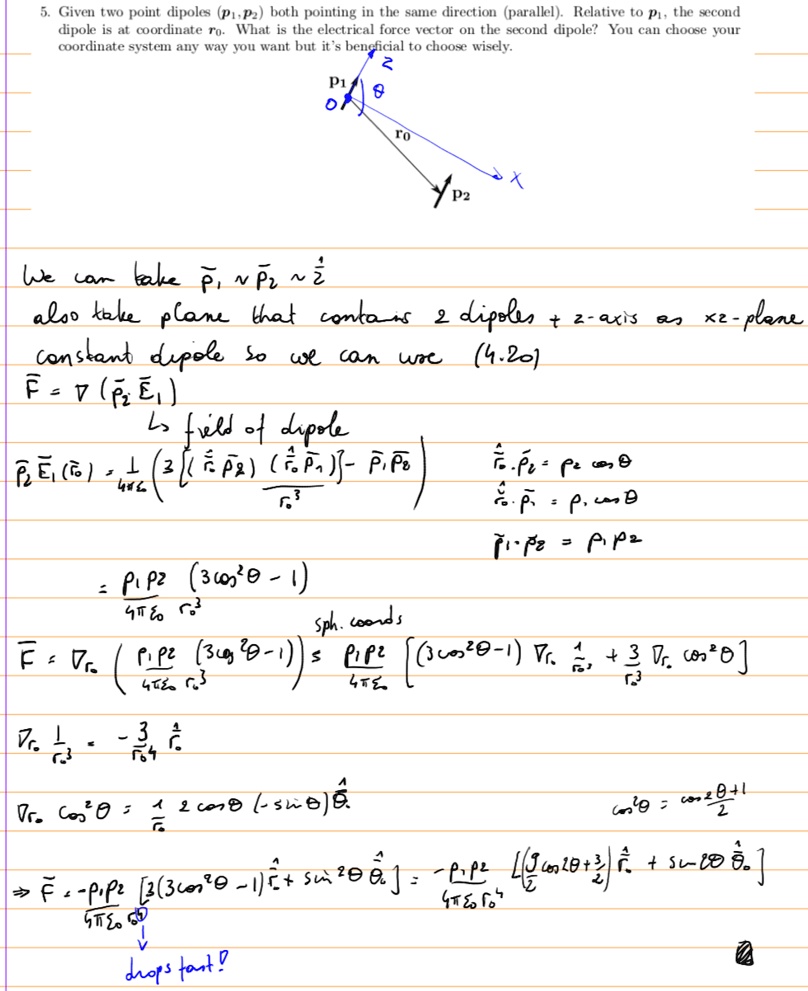 5. Given two point dipoles (p₁,p₂) both pointing in the same direction (parallel). Relative to p₁, the second
dipole is at coordinate r₀. What is the electrical force vector on the second dipole? You can choose your
coordinate system any way you want but it's beneficial to choose wisely.
z
p₁
θ
O
r₀
x
p₂
We can take p̄₁ ~ p̄₂ ~ ẑ
also take plane that contains 2 dipoles + z-axis as xz-plane
constant dipole so we can use (4.20)
F̄ = ∇ (p̄₂ Ē₁)
↳ field of dipole
p̄₂ Ē₁(r̄₀) = 1/4πε₀ (3 [(r̂₀ p̄₂) (r̂₀ p̄₁)] - p̄₁p̄₂ / r₀³)
r̂₀ . p̄₂ = p₂ cosθ
r̂₀ . p̄₁ = p₁ cosθ
p̄₁ . p̄₂ = p₁ p₂
= p₁p₂/4πε₀ r₀³ (3cos²θ - 1)
sph. coords
F̄ = ∇r₀ (p₁p₂/4πε₀ r₀³ (3cos²θ-1)) = p₁p₂/4πε₀ [(3cos²θ-1) ∇r₀ 1/r₀³ + 3/r₀³ ∇r₀ cos²θ]
∇r₀ 1/r₀³ = - 3/r₀⁴ r̂₀
∇r₀ cos²θ = 1/r₀ 2cosθ (-sinθ) θ̂₀
cos²θ = cos2θ+1/2
⇒ F̄ = -p₁p₂/4πε₀ r₀⁴ [3(3cos²θ-1) r̂₀ + sin2θ θ̂₀] = -p₁p₂/4πε₀ r₀⁴ [(9/2 cos2θ + 3/2) r̂₀ + sin2θ θ̂₀]
drops fast!